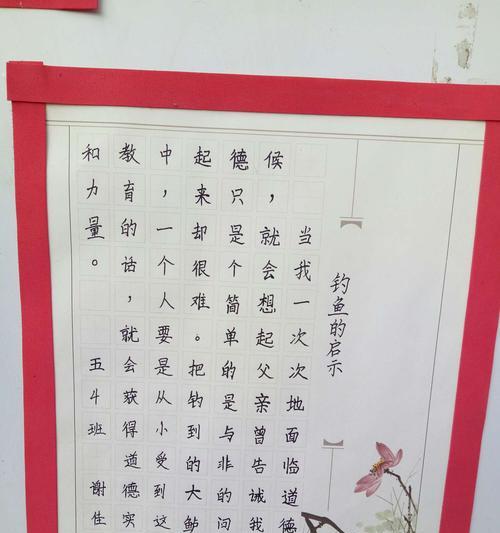 钓鱼的启示
当我一次次地面临道德
候，就会想起父亲曾告诫我
德只是个简单的是与非的问
起来却很难。把钓到的大鲈
中，一个人要是从小受到这
教育的话，就会获得道德实
和力量。 五4班 谢佳